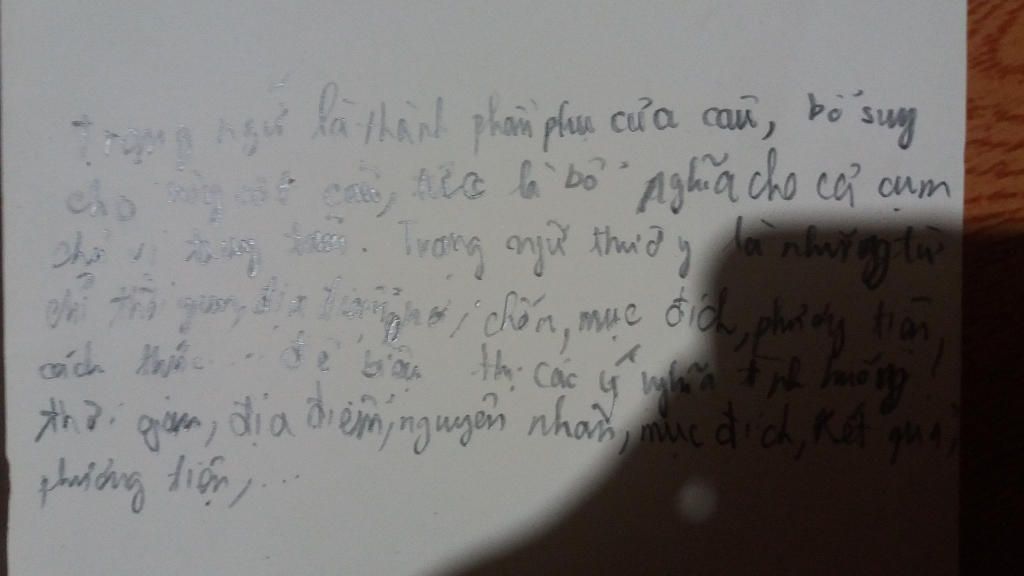 Trạng ngữ là thành phần phụ của câu, bổ suy
cho nòng cốt câu, tức là bổ nghĩa cho cả cụm
chủ vị trung tâm. Trạng ngữ thườ y là những từ
chỉ thời gian, địa điểm, nơi, chốn, mục đích, phương tiện,
cách thức... để biểu thị các ý nghĩa tình huống:
thời gian, địa điểm, nguyên nhân, mục đích, kết quả,
phương tiện,...